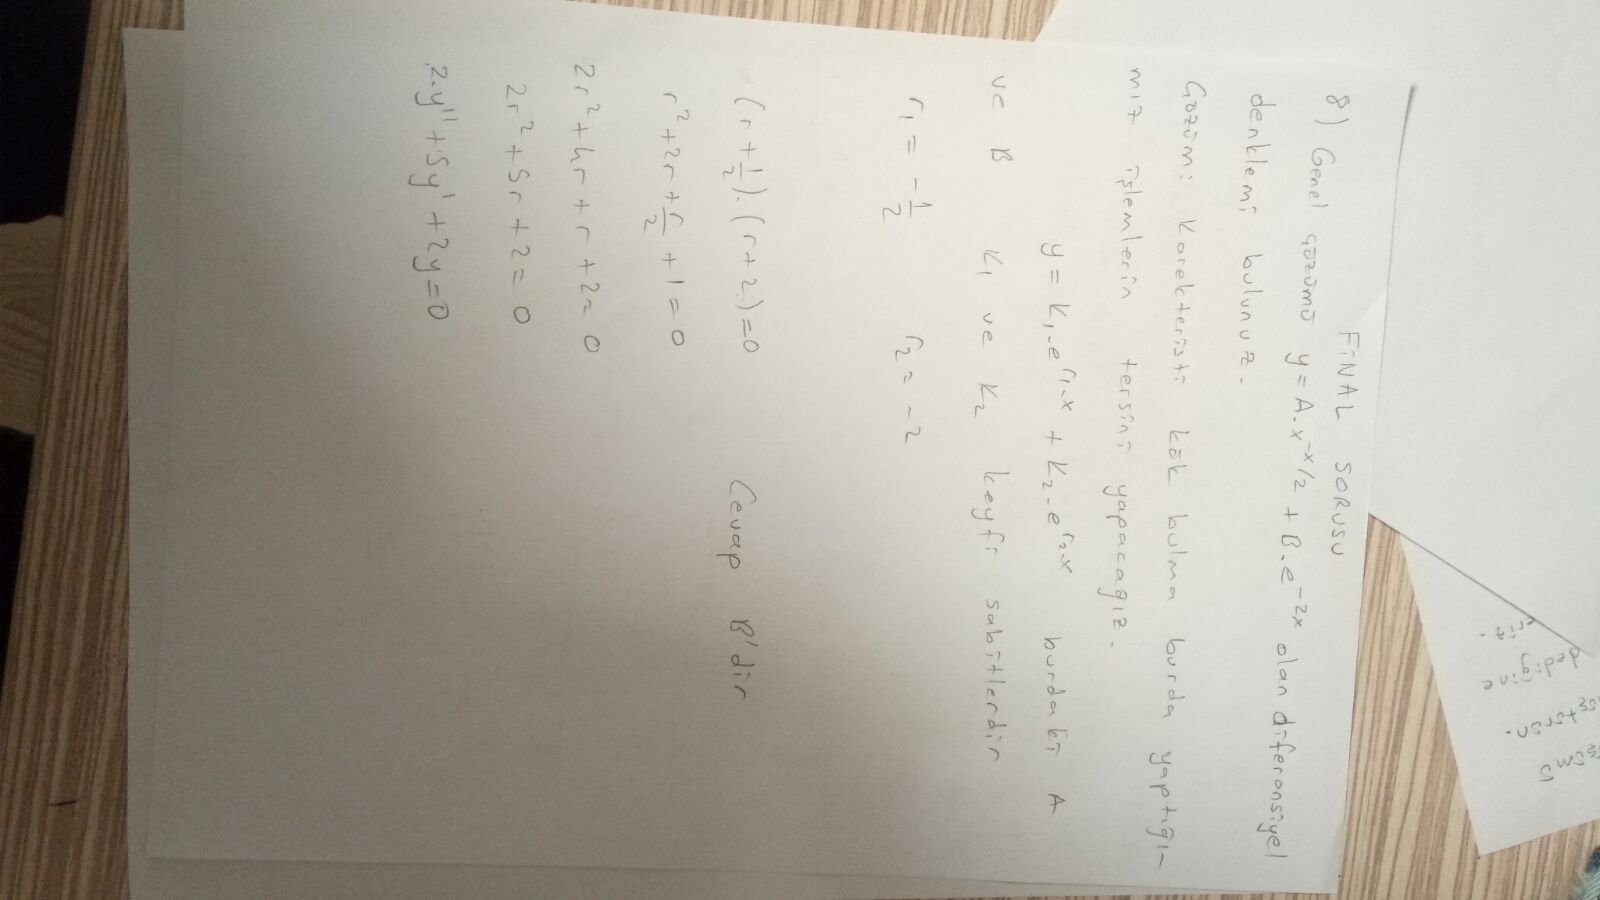 çözümü
üştürün.
dediğine
eriz.
FİNAL SORUSU
8) Genel çözümü y = A.x^-x/2 + B.e^-2x olan diferansiyel
denklemi bulunuz.
Çözüm: Karekteristi kök bulma burda yaptığı-
mız işlemlerin tersini yapacağız.
y = K₁.e^r₁.x + K₂.e^r₂.x burdaki A
ve B K₁ ve K₂ keyfi sabitlerdir
r₁ = -1/2 r₂ = -2
(r + 1/2).(r+2)=0 Cevap B'dir
r² + 2r + r/2 + 1 = 0
2r² + 4r + r + 2 = 0
2r² + 5r + 2 = 0
2.y'' + 5y' + 2y = 0